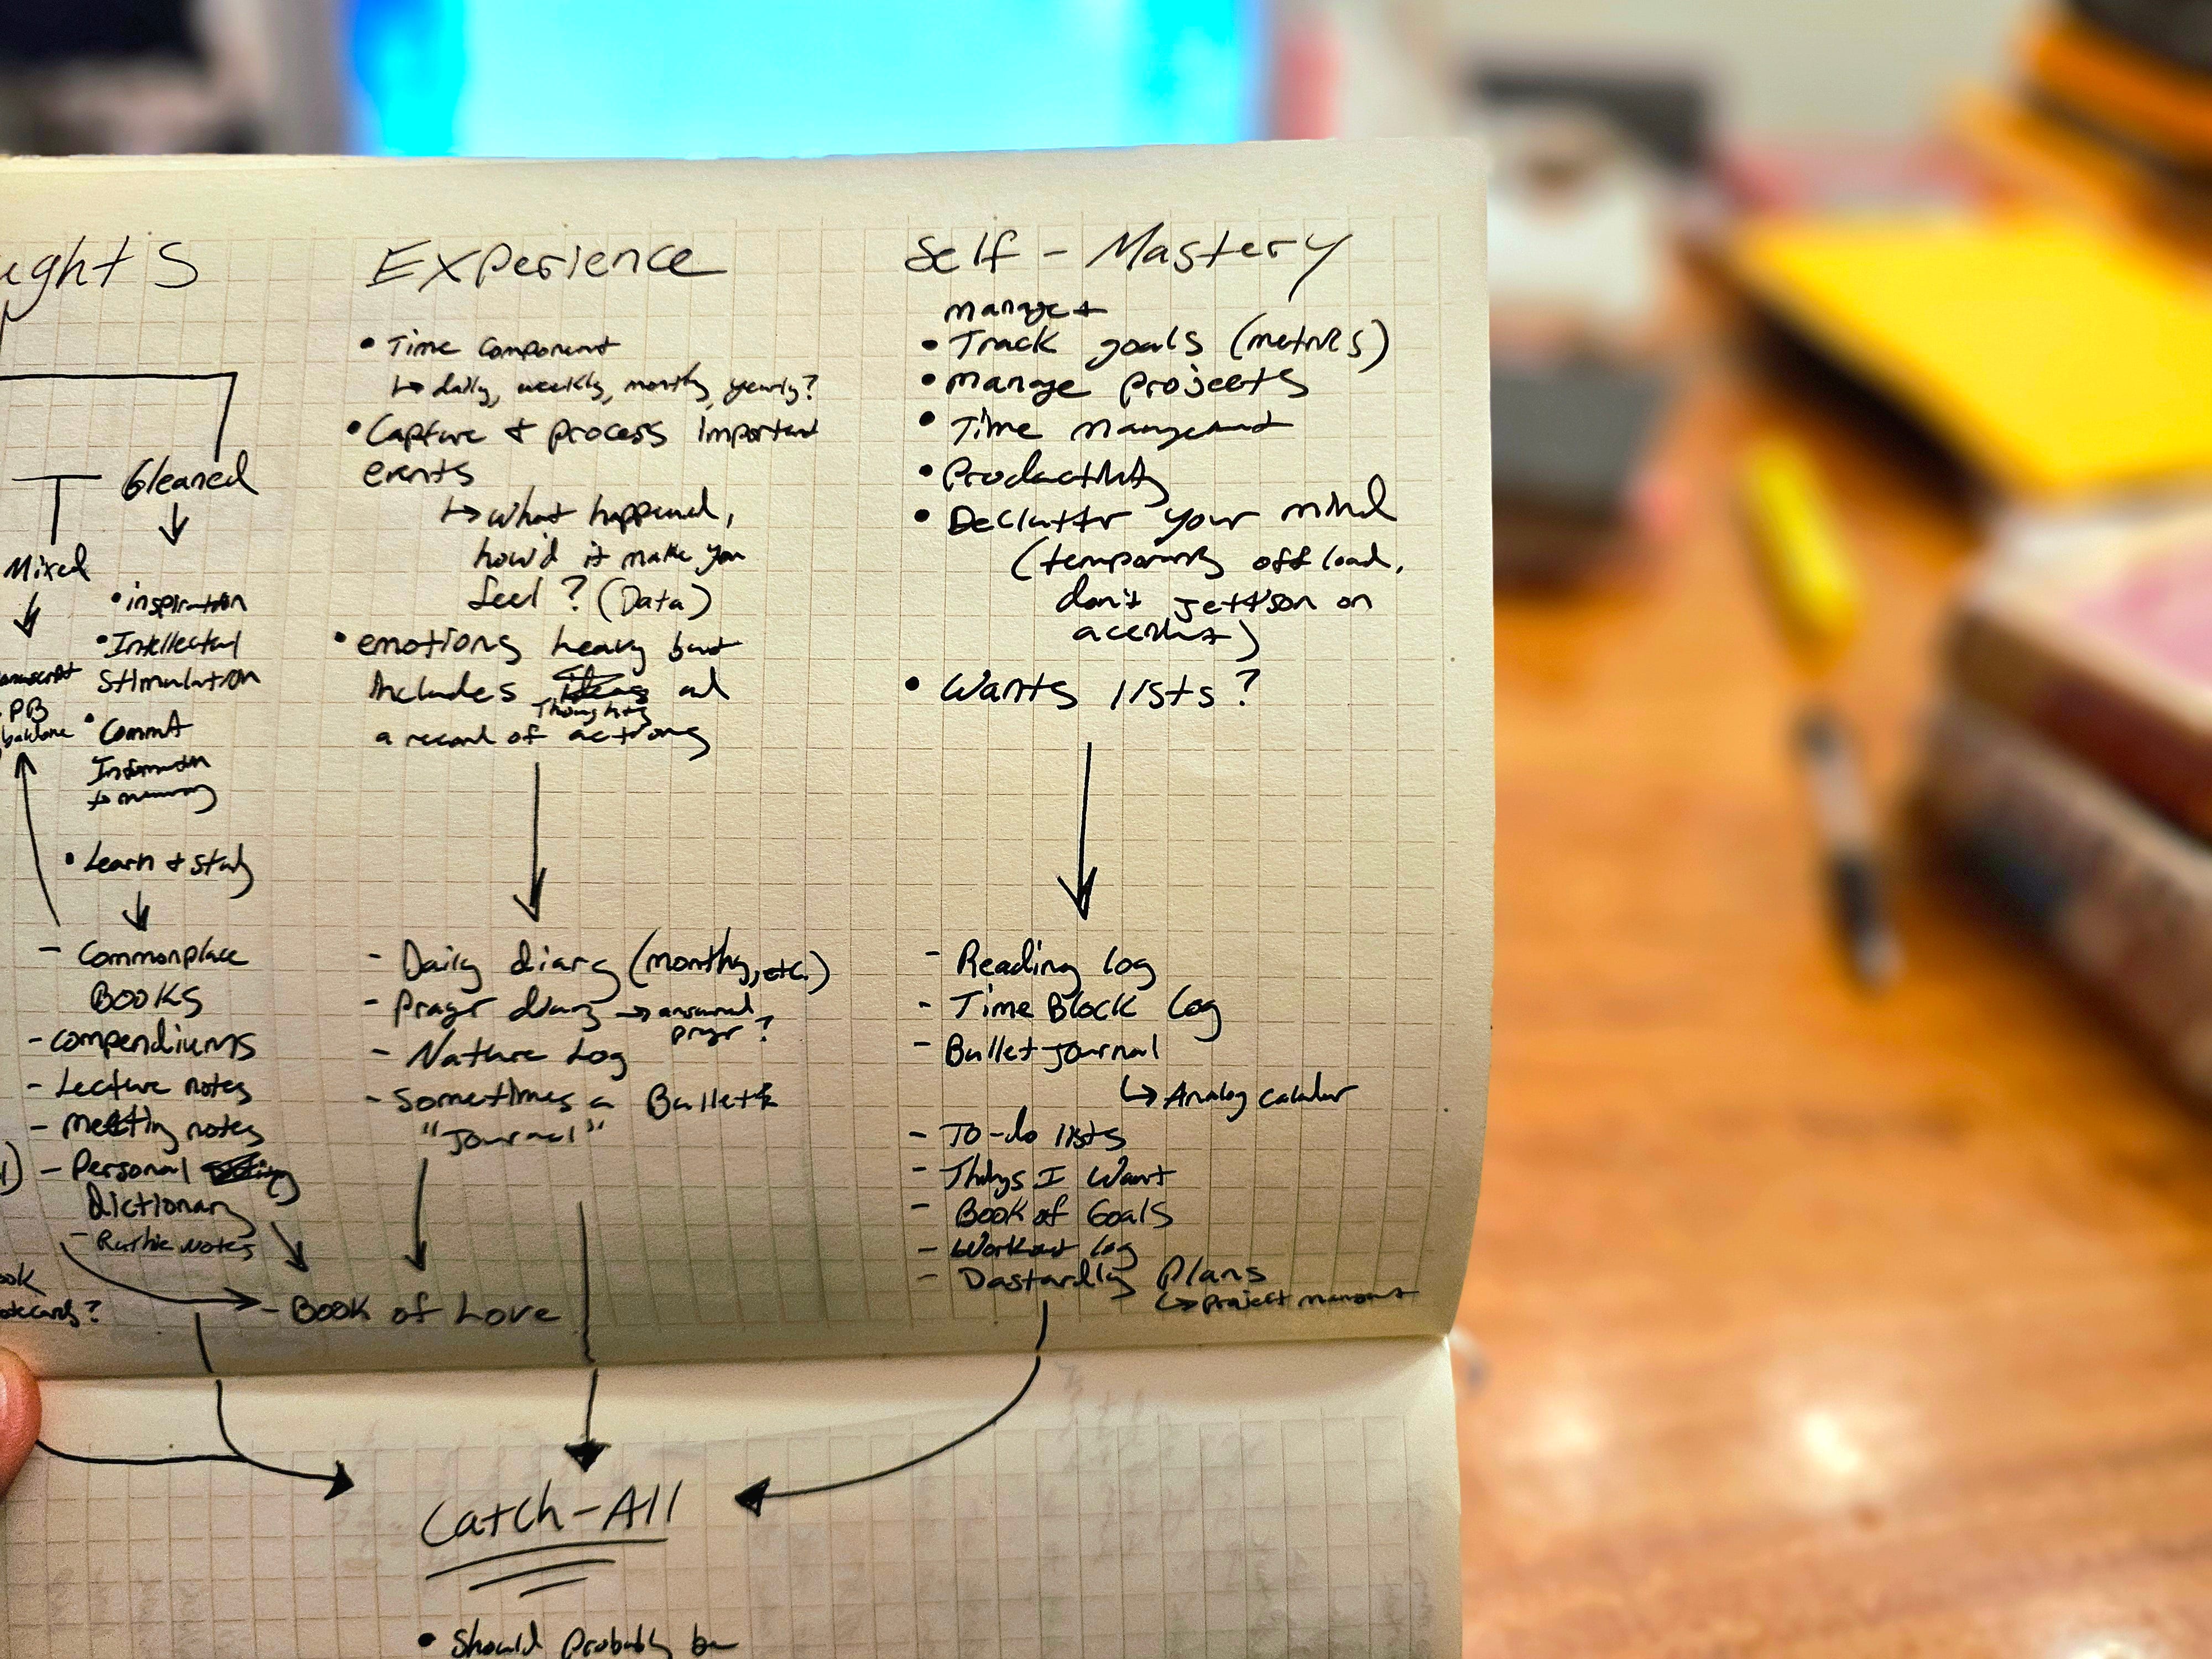 ughts
Gleaned
Mixed
PB
• inspiration
• Intellectual
Stimulation
• Commit
Information
to memory
• Learn + study
- Commonplace
Books
- compendiums
- Lecture notes
- meeting notes
- Personal
Dictionary
- Ruthie notes
ook
otecards?
Experience
• Time component
↳ daily, weekly, monthly, yearly?
• Capture + process important
events
↳ what happened,
how'd it make you
feel? (Data)
• emotions heavy but
includes and
Thoughts
a record of actions
- Daily diary (monthly, etc.)
- Prayer diary → answered
prayer?
- Nature Log
- Sometimes a Bullet
"Journal"
- Book of Love
Self-Mastery
manage +
• Track goals (metrics)
• manage projects
• Time management
• Productivity
• Declutter your mind
(temporarily off load,
don't jettison on
accident)
• Wants lists?
- Reading log
- Time Block Log
- Bullet Journal
↳ Analog calendar
- To-do lists
- Things I Want
- Book of Goals
- Workout log
- Dastardly Plans
↳ project
Catch-All
• Should probably be